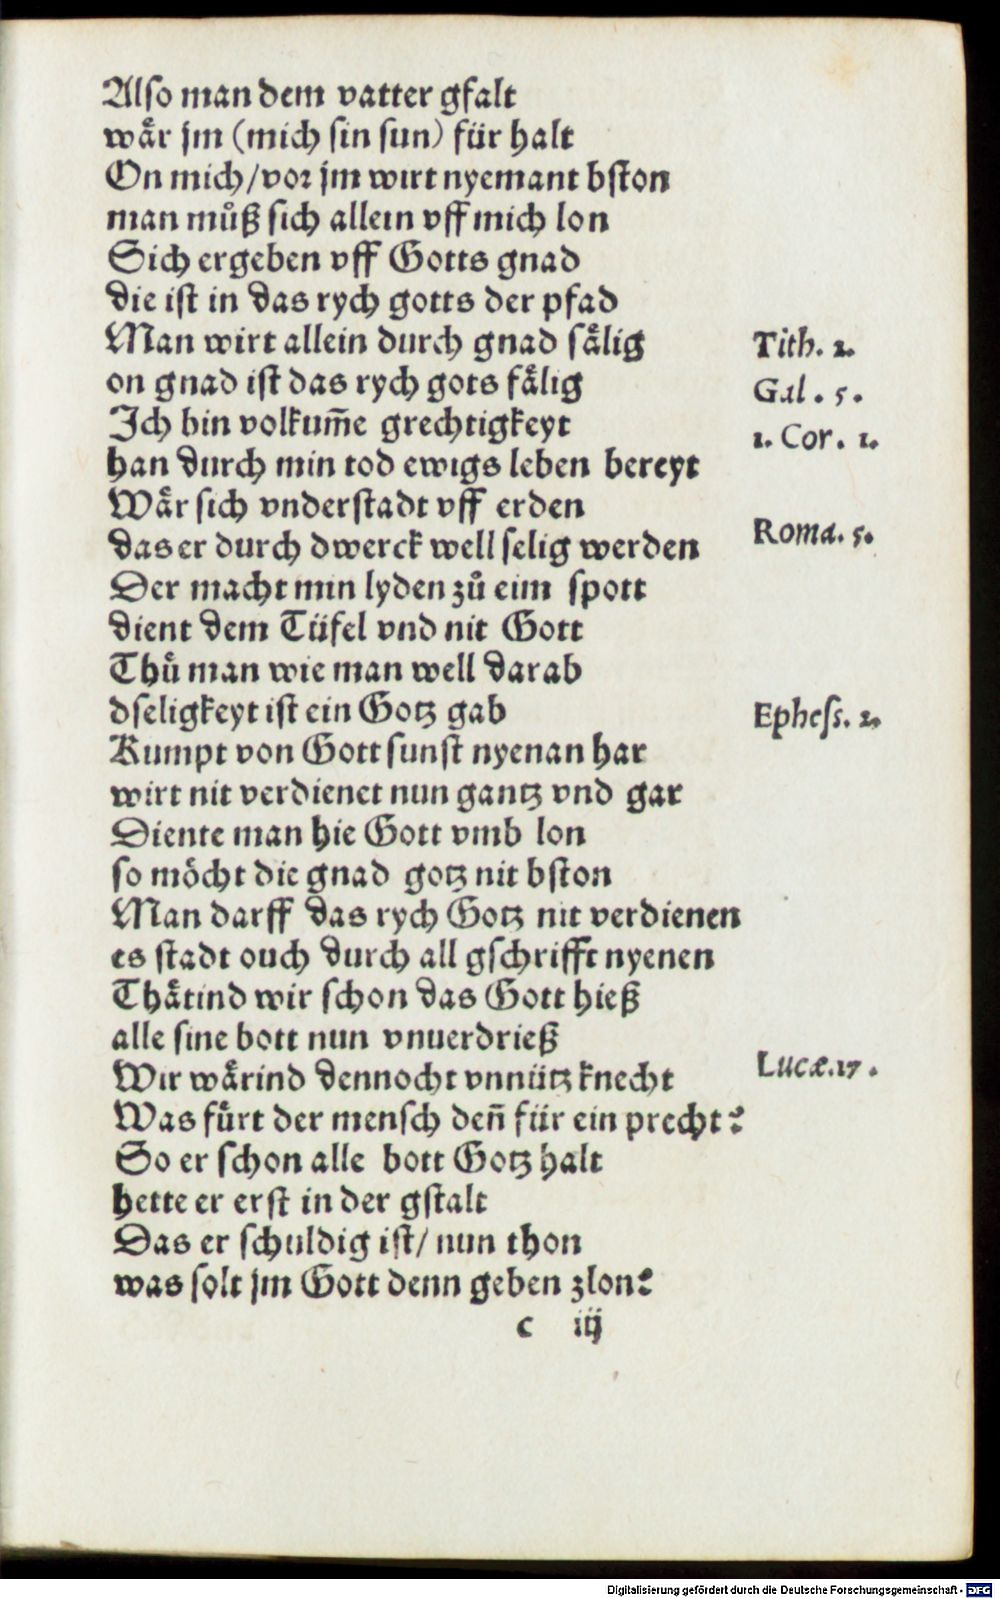 Also man dem vatter gfalt
wåͤr jm (mich sin sun) für halt
On mich/vor jm wirt nyemant bston
man muͦß sich allein vff mich lon
Sich ergeben vff Gotts gnad
die ist in das rych gotts der pfad
Man wirt allein durch gnad saͤlig
Tith. 2.
on gnad ist das rych gots faͤlig
Gal. 5.
Ich bin volkum̄e grechtigkeyt
1. Cor. 1.
han durch min tod ewigs leben bereyt
Waͤr sich vnderstadt vff erden
das er durch dwerck well selig werden
Roma. 5.
Der macht min lyden zuͦ eim spott
dient dem Tüfel vnd nit Gott
Thuͤ man wie man well darab
dseligkeyt ist ein Gotz gab
Ephess. 2.
Kumpt von Gott sunst nyenan har
wirt nit verdienet nun gantz vnd gar
Diente man hie Gott vmb lon
so moͤcht die gnad gotz nit bston
Man darff das rych Gotz nit verdienen
es stadt ouch durch all gschrifft nyenen
Thaͤtind wir schon das Gott hieß
alle sine bott nun vnuerdrieß
Wir waͤrind dennocht vnnütz knecht
Lucæ. 17.
Was fuͤrt der mensch deñ für ein precht?
So er schon alle bott Gotz halt
hette er erst in der gstalt
Das er schuldig ist/ nun thon
was solt jm Gott denn geben zlon?
c iij
Digitalisierung gefördert durch die Deutsche Forschungsgemeinschaft - DFG